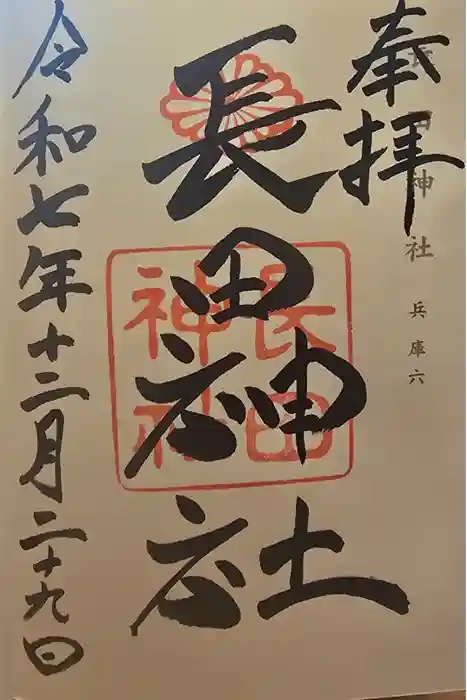 奉拝
長田神社 兵庫六
長田神社
長田
神社
令和七年十二月二十九日